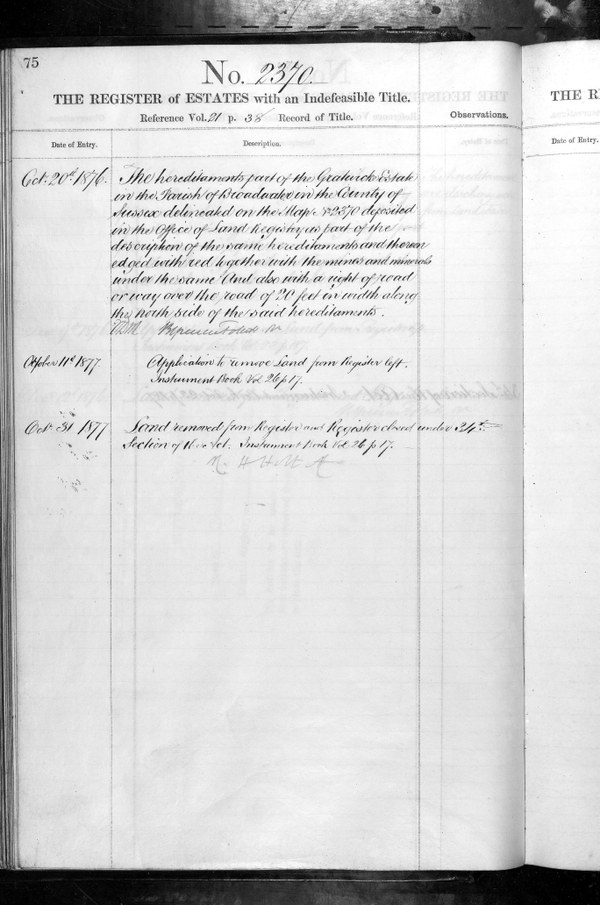 75
No. 2370.
THE REGISTER of ESTATES with an Indefeasible Title.
Reference Vol. 21 p. 38 Record of Title.
Observations.
Date of Entry.
Description.
Oct. 20th 1876.
The hereditaments part of the Gratwicke Estate
in the Parish of Broadwater in the County of
Sussex delineated on the Map No 2370 deposited
in the Office of Land Registry as part of the
description of the same hereditaments and thereon
edged with red together with the mines and minerals
under the same And also with a right of road
or way over the road of 20 feet in width along
the north side of the said hereditaments.
October 11th 1877.
Application to remove Land from Register left.
Instrument Book Vol 26 p 17.
Oct. 31 1877
Land removed from Register and Register closed under 34th
Section of the Act. Instrument Book Vol. 26 p 17.
THE RE
Date of Entry.